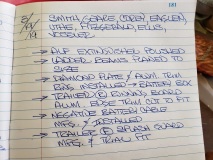 181
8/
19
SMITH, GEAKE, COREN, ENGLISH,
UTHE, FITZGERALD, ELLIS,
→ ALF EXTINGUISHER POLISHED
→ LADDER BEAMS PLANED TO
SIZE
→ DIAMOND PLATE & ALUM. TRIM
INSTALLED → BATTERY BOX
→ RUNNING BOARD
ALUM. EDGE TRIM CUT TO FIT
→ NEGATIVE BATTERY CABLE
MFG. & INSTALLED
→ TRAILER SPLASH GUARD
MFG. & TRIAL FIT